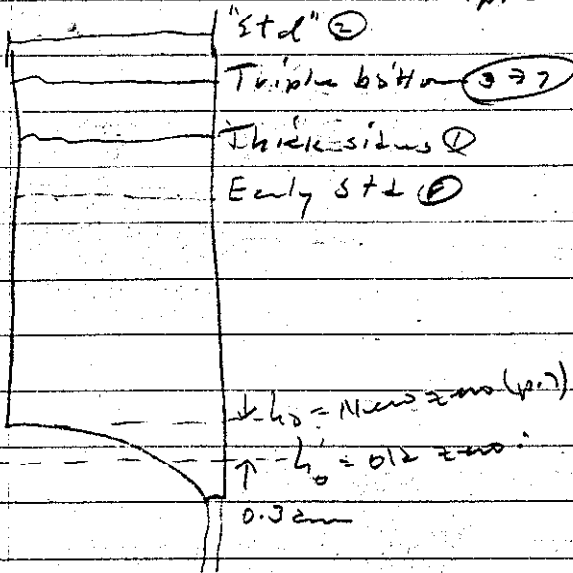 p.
"Std" ②
Triple bottom 3→7
Thick sides ①
Early Std
h₀ = New zero (p.7)
h₀' = old zero
0.3 cm